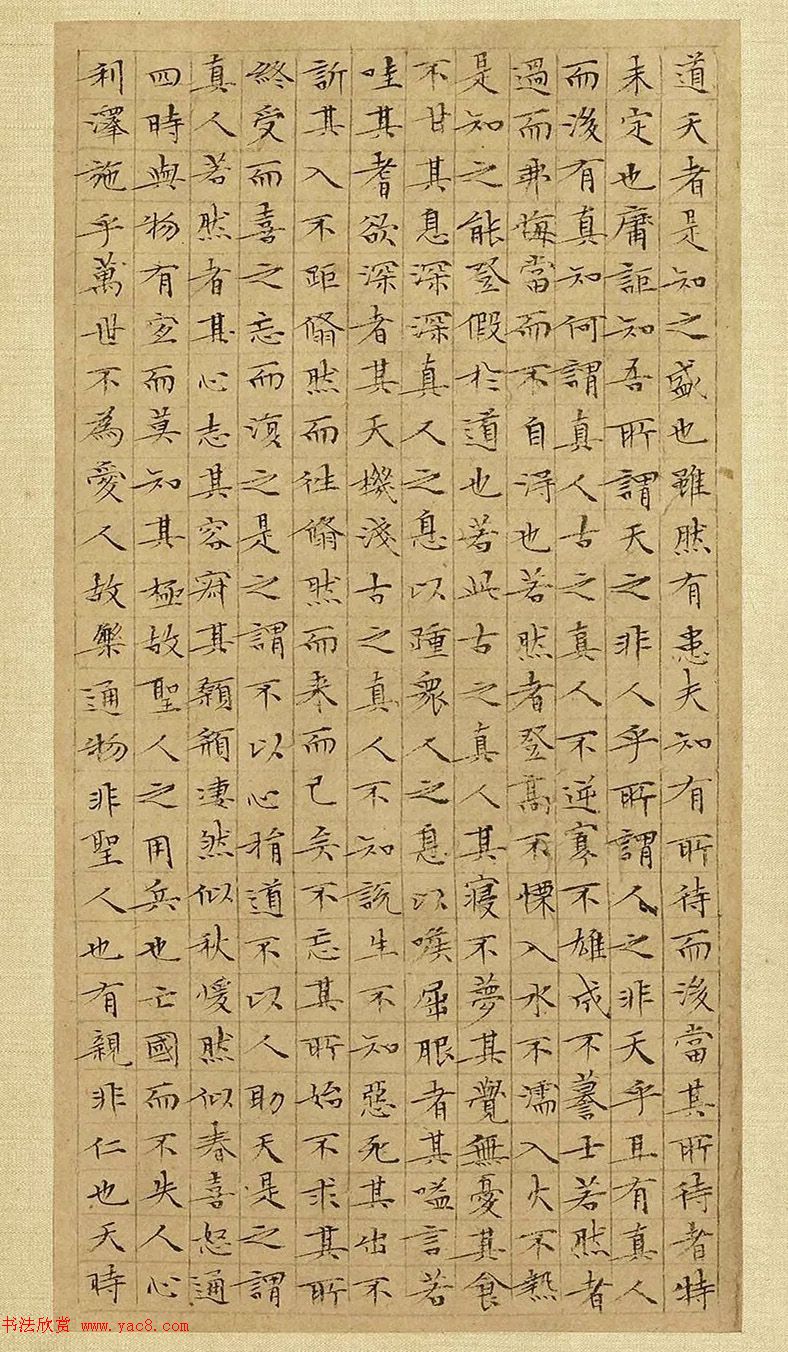 道夭者是知之盛也雖然有患夫知有所待而後當其所待者特
未定也庸詎知吾所謂天之非人乎所謂人之非天乎且有真人
而後有真知何謂真人古之真人不逆寡不雄成不謩士若然者
過而弗悔當而不自得也若然者登高不慄入水不濡入火不熱
是知之能登假於道也若此古之真人其寢不夢其覺無憂其食
不甘其息深深真人之息以踵衆人之息以喉屈服者其嗌言若
哇其耆欲深者其天機淺古之真人不知說生不知惡死其出不
訢其入不距翛然而往翛然而來而已矣不忘其所始不求其所
終受而喜之忘而復之是之謂不以心捐道不以人助天是之謂
真人若然者其心志其容寂其顙頯淒然似秋煖然似春喜怒通
四時與物有宜而莫知其極故聖人之用兵也亡國而不失人心
利澤施乎萬世不為愛人故樂通物非聖人也有親非仁也天時
书法欣赏 www.yac8.com